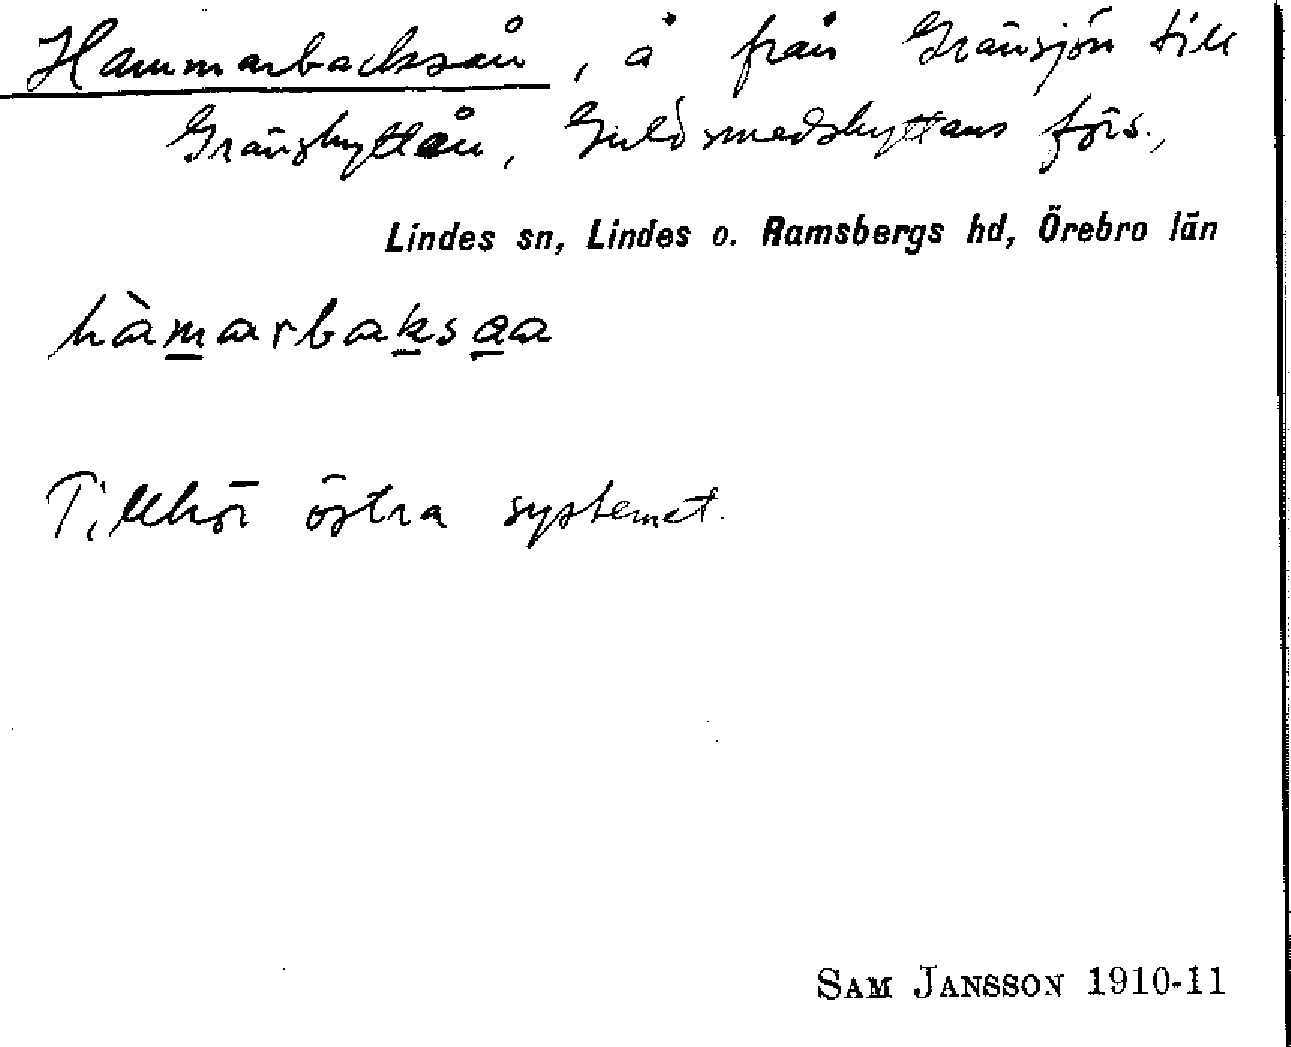 Hammarbacksån, å från Gränsjön till
Gränshyttån, Guldsmedshyttans förs.,
Lindes sn, Lindes o. Ramsbergs hd, Örebro län
hàmarbaksaa
Tillhör östra systemet.
SAM JANSSON 1910-11